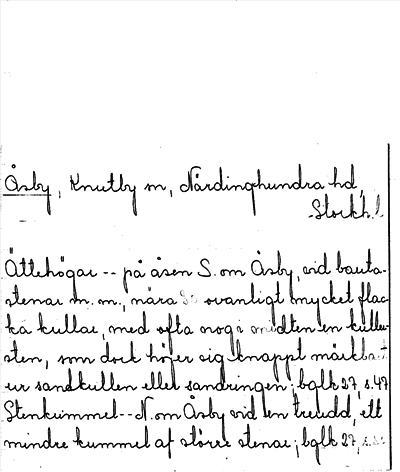 Åsby, Knutby sn, Närdinghundra hd,
Stockh. l.
Ättehögar -- på åsen S. om Åsby, vid bauta-
stenar m. m., nära 30 ovanligt mycket flac-
ka kullar, med ofta nog i midten en kuller-
sten, som dock höjer sig knappt märkbart
ur sandkullen eller sandringen; bglk 27, s. 47
Stenkummel -- N. om Åsby vid en treudd, ett
mindre kummel af större stenar; bglk 27, s.